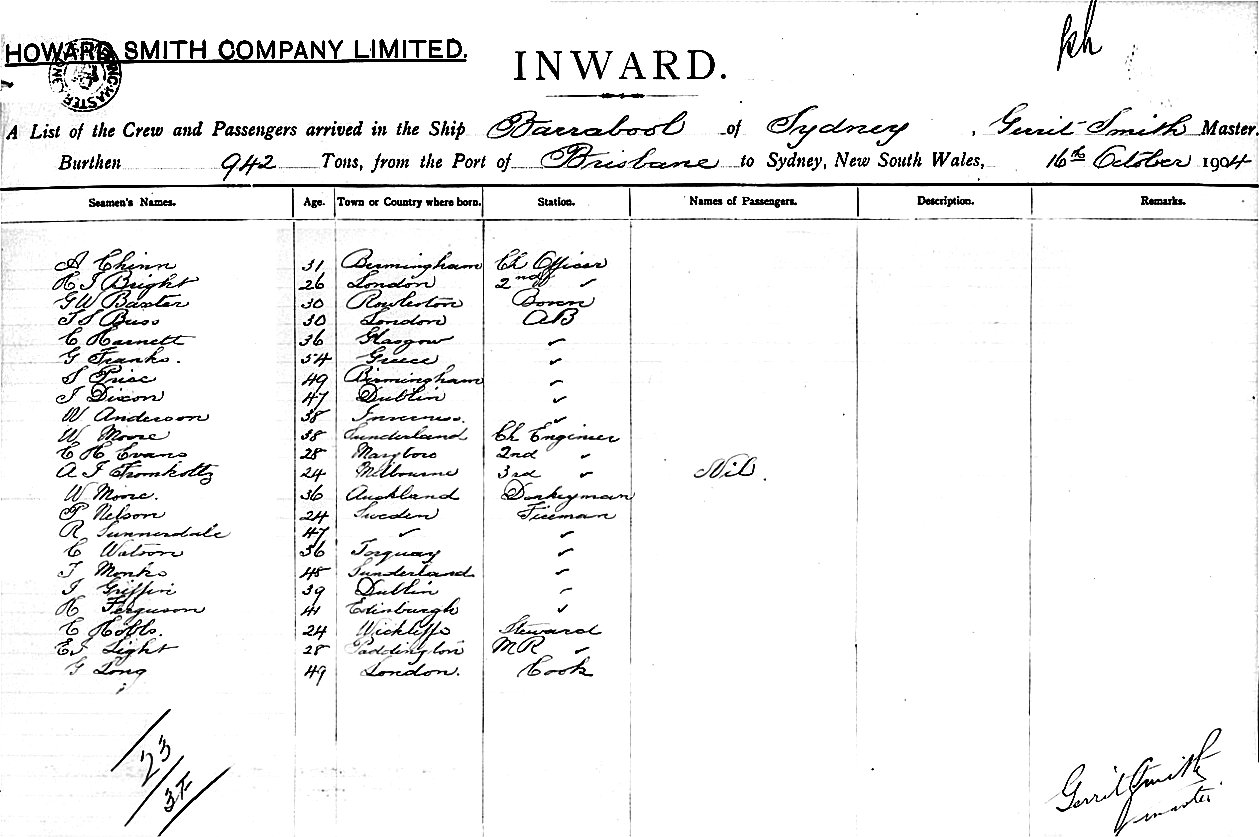 HOWARD SMITH COMPANY LIMITED.
INWARD.
A List of the Crew and Passengers arrived in the Ship Barrabool of Sydney, Gerrit Smith Master.
Burthen 942 Tons, from the Port of Brisbane to Sydney, New South Wales, 16th October 1904
Seamen's Names. Age. Town or Country where born. Station. Names of Passengers. Description. Remarks.
A Chinn 31 Birmingham Ch Officer
H J Bright 26 London 2nd "
G W Baxter 30 Rowleston Bosen
Buss 30 London AB
C Harnett 36 Glasgow "
G Franks. 54 Greece "
S Price 49 Birmingham "
J Dixon 47 Dublin "
W Anderson 38 Inverness. "
W Moore 38 Sunderland Ch Engineer
C H Evans 28 Maryboro 2nd "
A J Fromholtz 24 Melbourne 3rd " Nil.
W Moore. 36 Auckland Donkeyman
P Nelson 24 Sweden Fireman
R Sunnerdale 47 " "
C Watson 36 Torquay "
T Monks 48 Sunderland "
J Griffin 39 Dublin "
H Ferguson 41 Edinburgh "
C Hobbs. 24 Wickliffe Steward
E J Light 28 Paddington MR "
G Long 49 London. Cook
23
Gerrit Smith
master